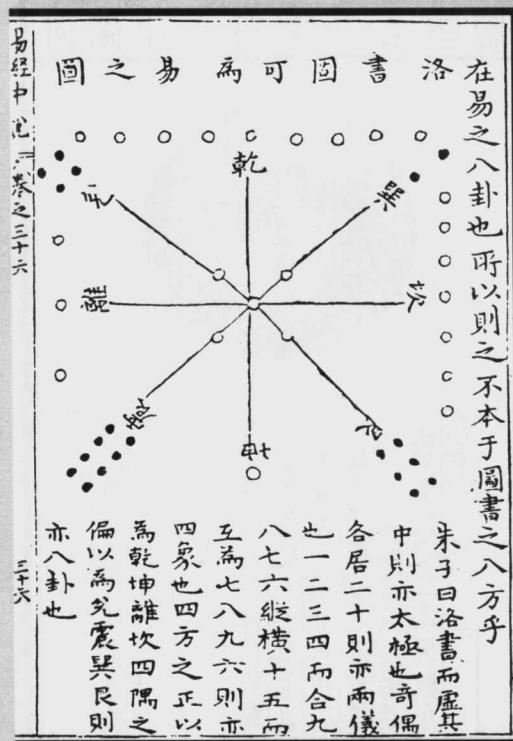 在易之八卦也所以則之不本于圖書之八方乎
洛書固可為易之圖
乾
巽
兌
坎
離
艮
震
坤
朱子曰洛書而虛其
中則亦太極也奇偶
各居二十則亦兩儀
也一二三四而合九
八七六縱橫十五而
互為七八九六則亦
四象也四方之正以
為乾坤離坎四隅之
偏以為兌震巽艮則
亦八卦也
易經中說 卷之三十六
三十六